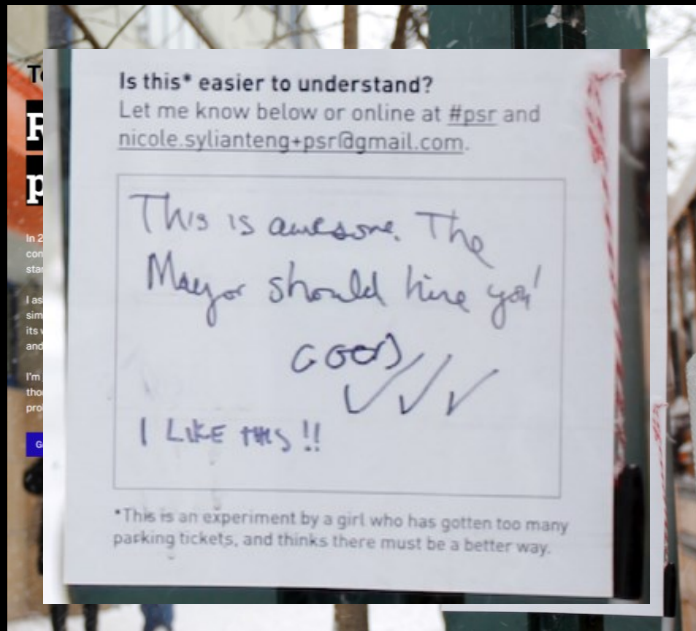 Is this* easier to understand?
Let me know below or online at #psr and
nicole.sylianteng+psr@gmail.com.
This is awesome. The
Mayor should hire you!
GOOD
✓✓✓
I LIKE THIS!!
*This is an experiment by a girl who has gotten too many
parking tickets, and thinks there must be a better way.